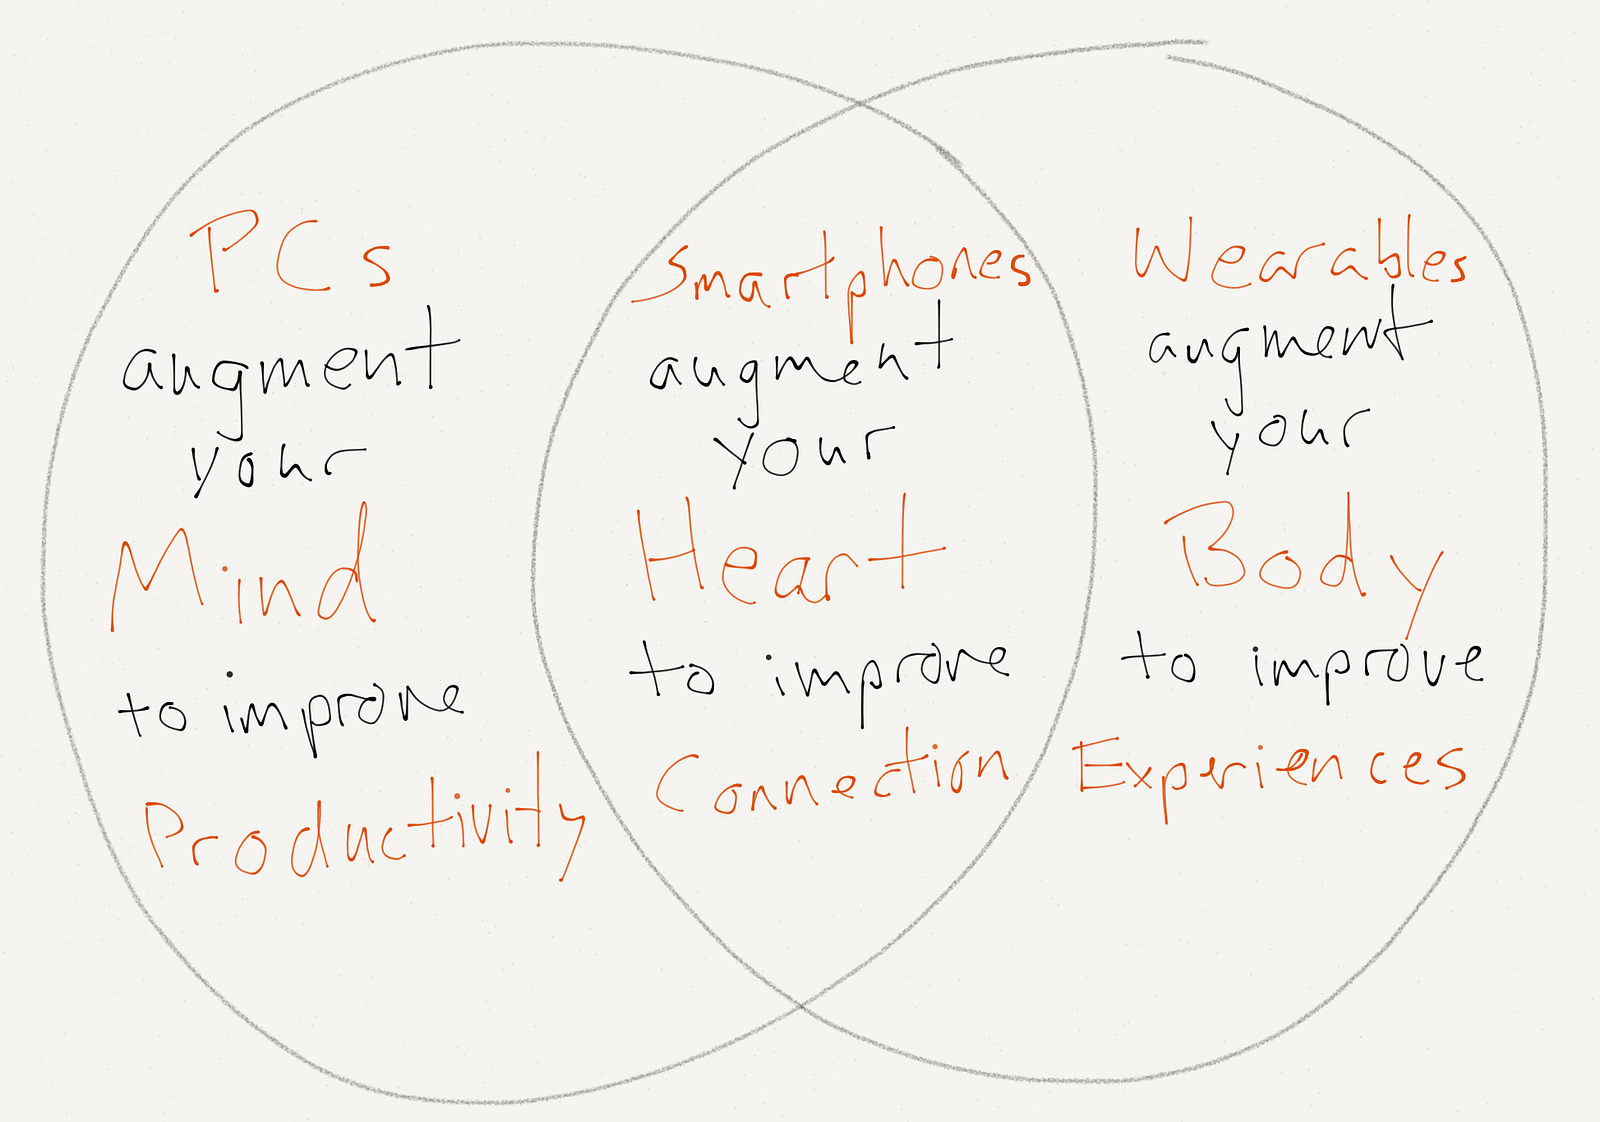 PCs
augment
your
Mind
to improve
Productivity
Smartphones
augment
your
Heart
to improve
Connection
Wearables
augment
your
Body
to improve
Experiences